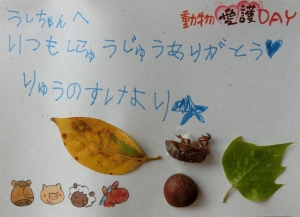 うしちゃんへ
動物愛護DAY
いつもにゅうじゅうありがとう♥
りゅうのすけより★